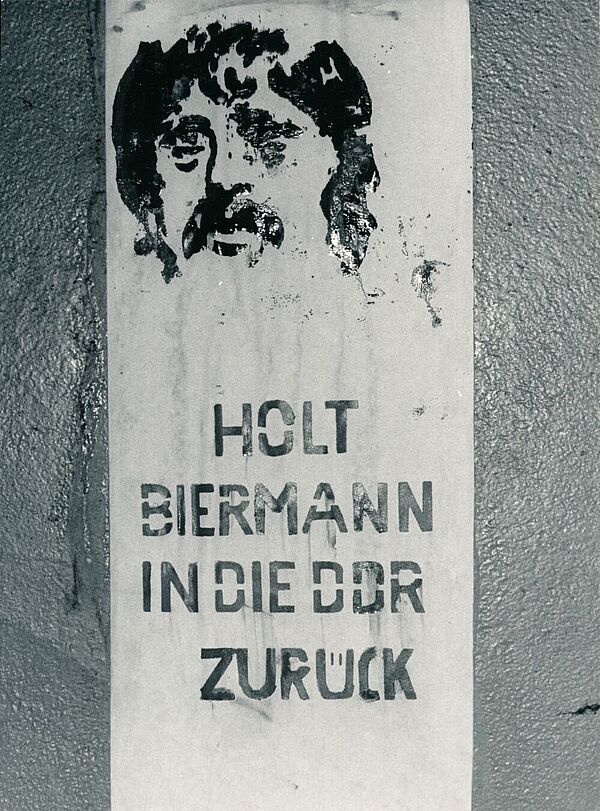 HOLT
BIERMANN
IN DIE DDR
ZURÜCK